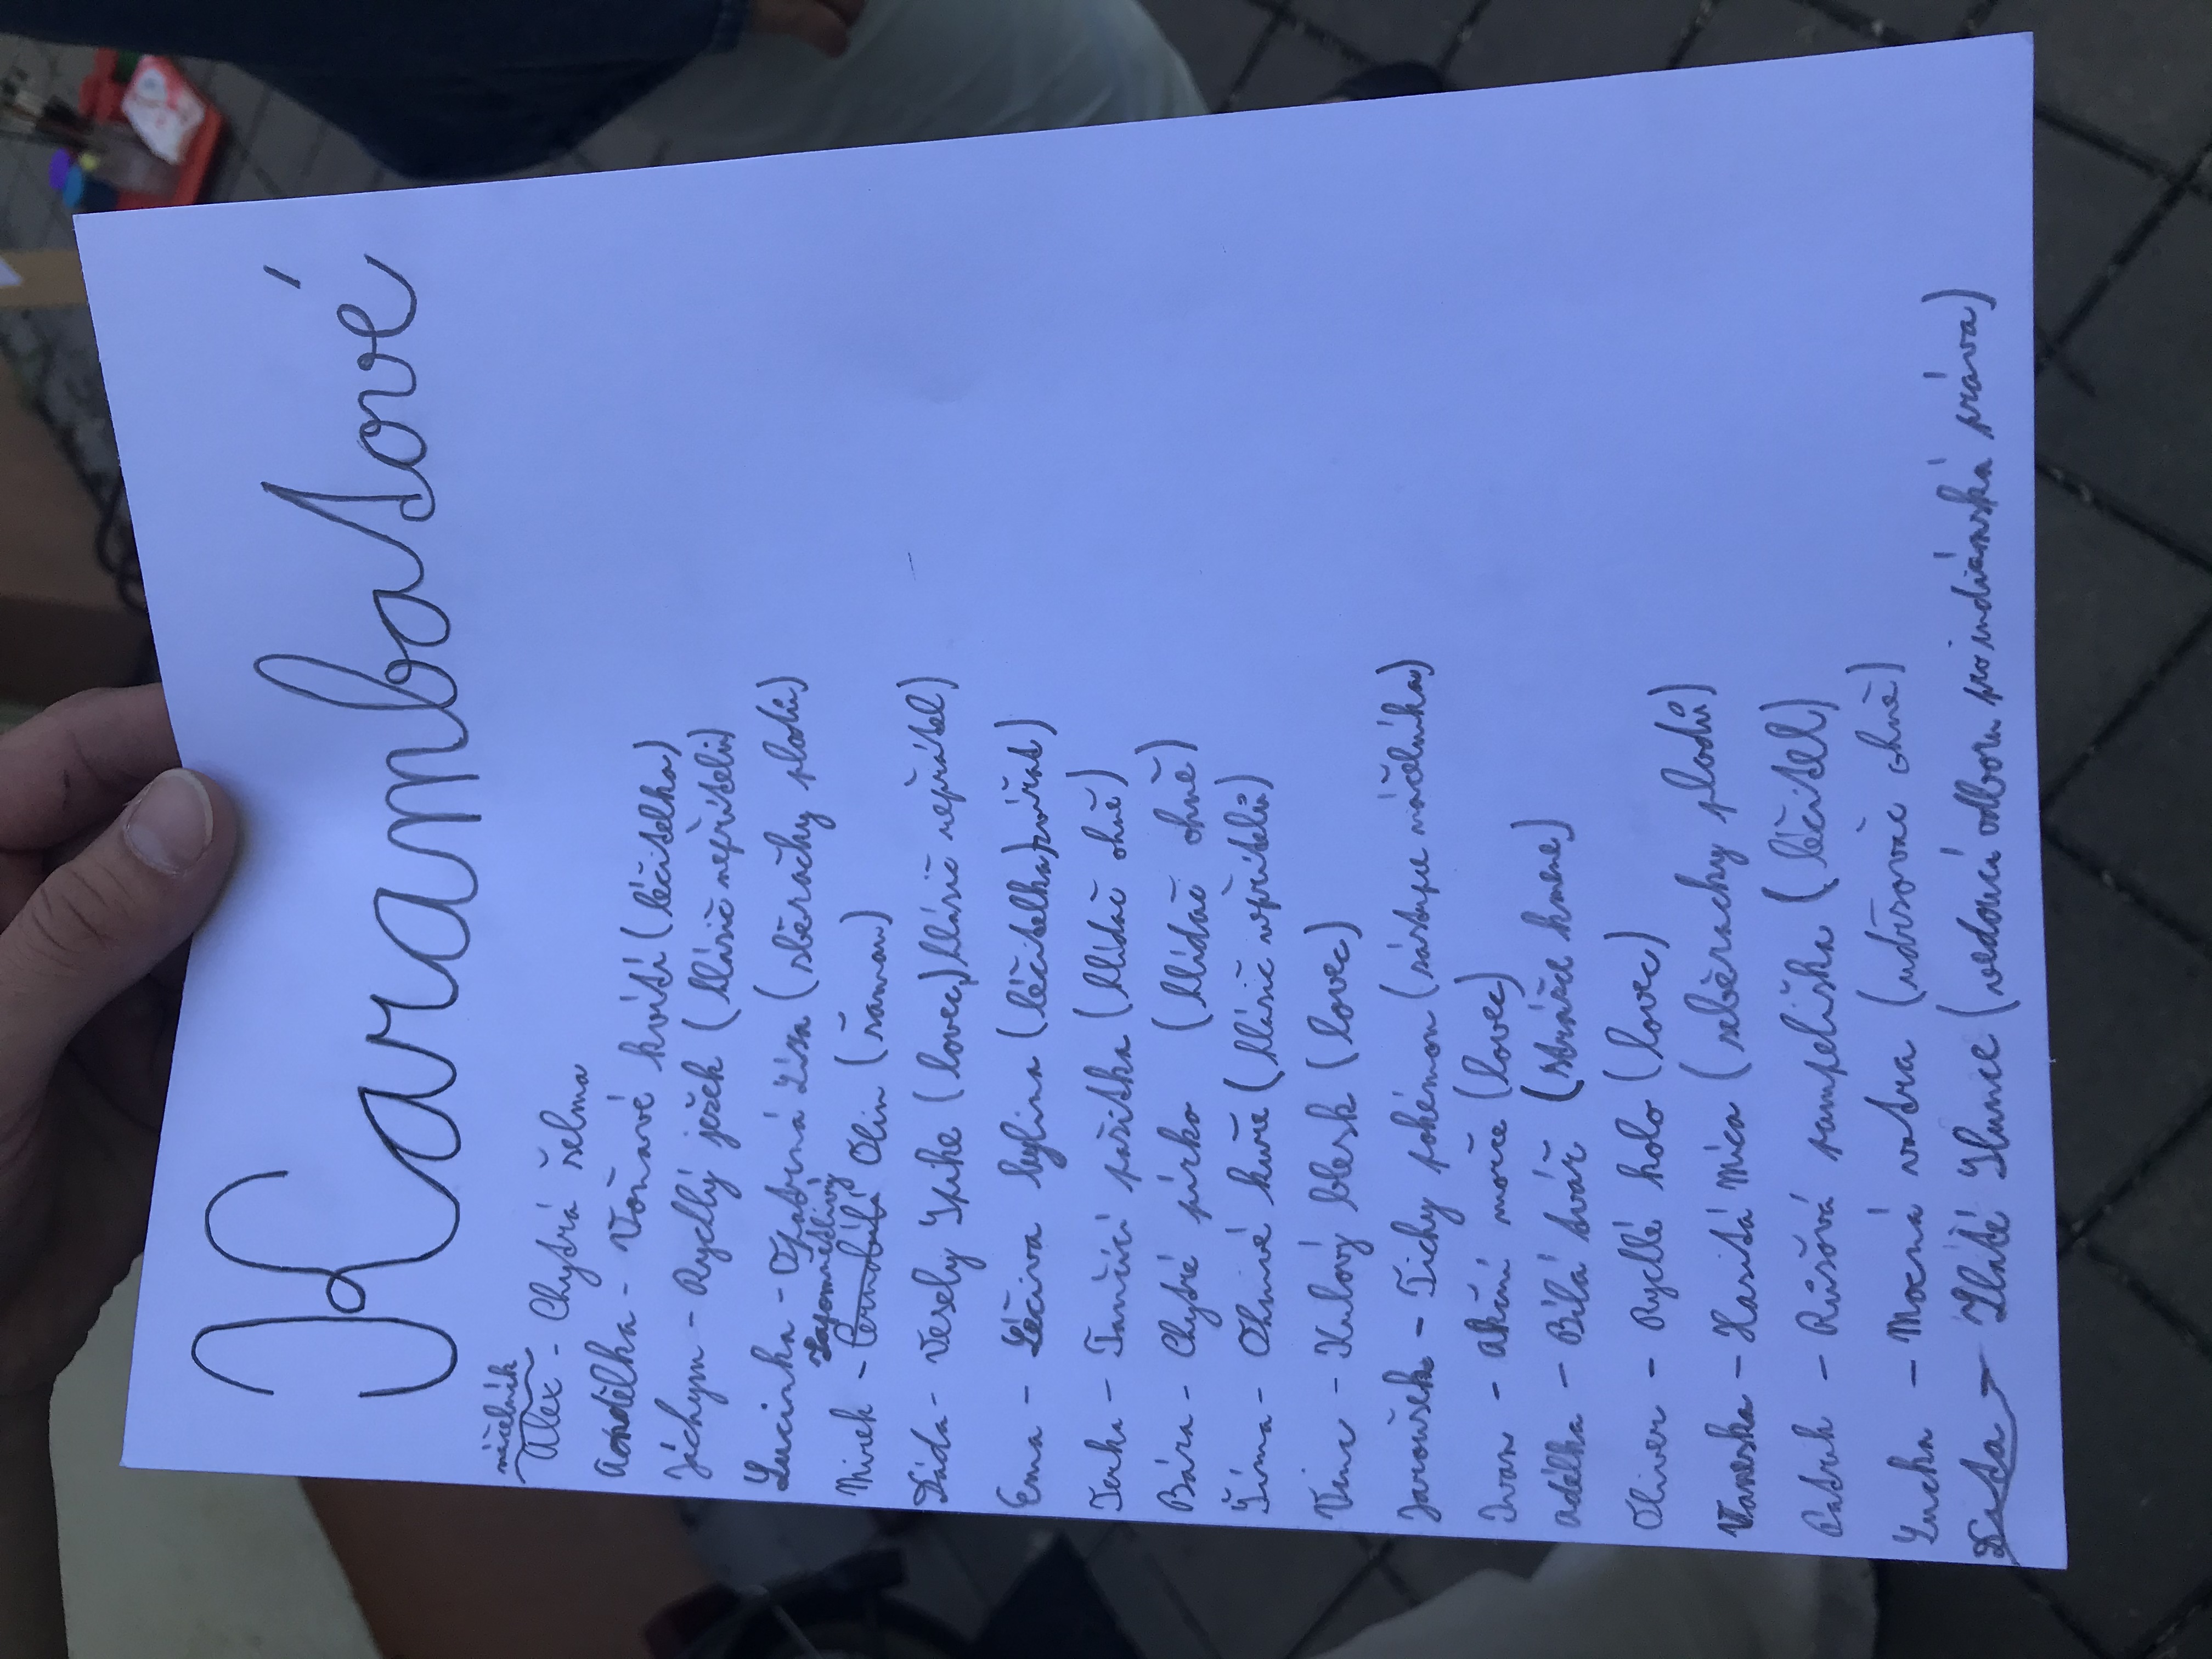 Karambasové
náčelník
Alex - Chytrá šelma
Andělka - Voňavé kvítí (léčitelka)
Jáchym - Rychlý ježek (hlásič nepřátelů)
Lucinka - Opatrná Líza (sběračky plodů)
Zapomnětlivý
Mirek - Olin (šaman)
Dáda - Veselý Spike (lovec, hlásič nepřátel)
Ema - Léčiva bylina (léčitelka zvířat)
Terka - Tančící pažitka (hlídač ohně)
Bára - Chytré pírko (hlídač ohně)
Šíma - Ohnivé kuře (hlásič nepřátelů)
Vinc - Kulový blesk (lovec)
Jaroušek - Tichy pokémon (zástupce náčelníka)
Ivan - Akční morče (lovec)
Adélka - Bílá tvář (strážce kmene)
Oliver - Rychlé kolo (lovec)
Vaneska - Zlatá Mica (sběrachy plodů)
Patrik - Růžová pampeliška (léčitel)
Lucka - Mocná vatra (udržovač ohně)
Dita - Zlaté Slunce (vedoucí odboru pro indiánská práva)